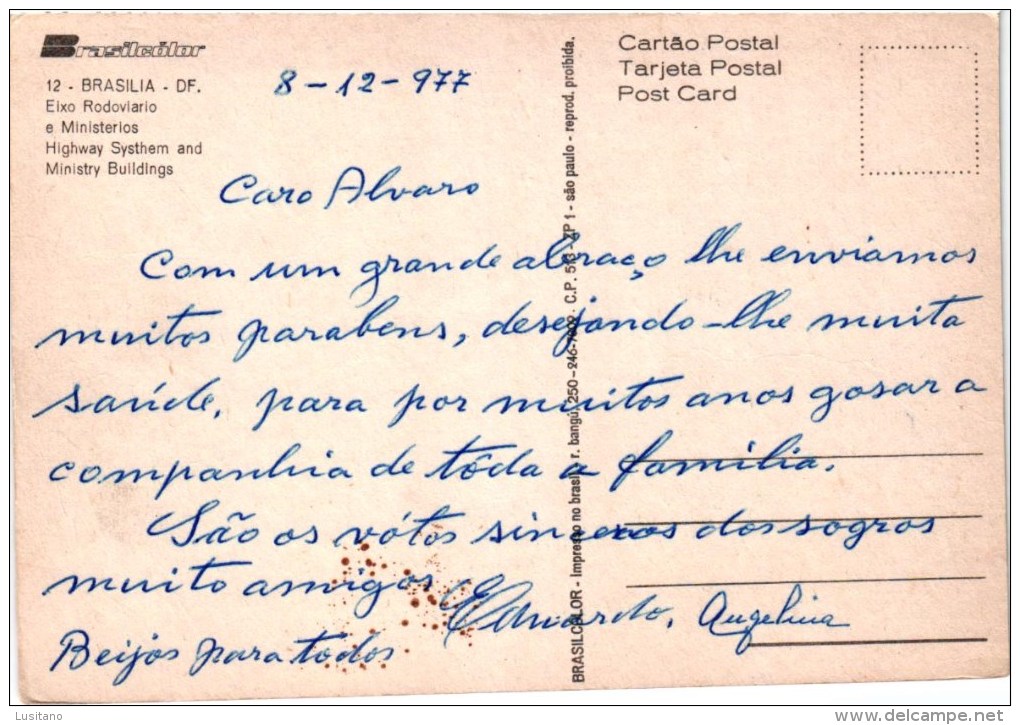 Brasilcólor
12 - BRASILIA - DF.
Eixo Rodoviario
e Ministerios
Highway Systhem and
Ministry Buildings
8-12-977
Cartão Postal
Tarjeta Postal
Post Card
Caro Alvaro
Com um grande abraço lhe enviamos
muitos parabens, desejando-lhe muita
saúde, para por muitos anos gosar a
companhia de tôda a família.
São os vótos sinceros dos sogros
muito amigos
Eduardo, Angelina
Beijos para todos
BRASILCOLOR - Impresso no brasil - r. bangú, 250 - 246- C.P. ZP 1 - são paulo - reprod. proibida.
Lusitano
www.delcampe.net